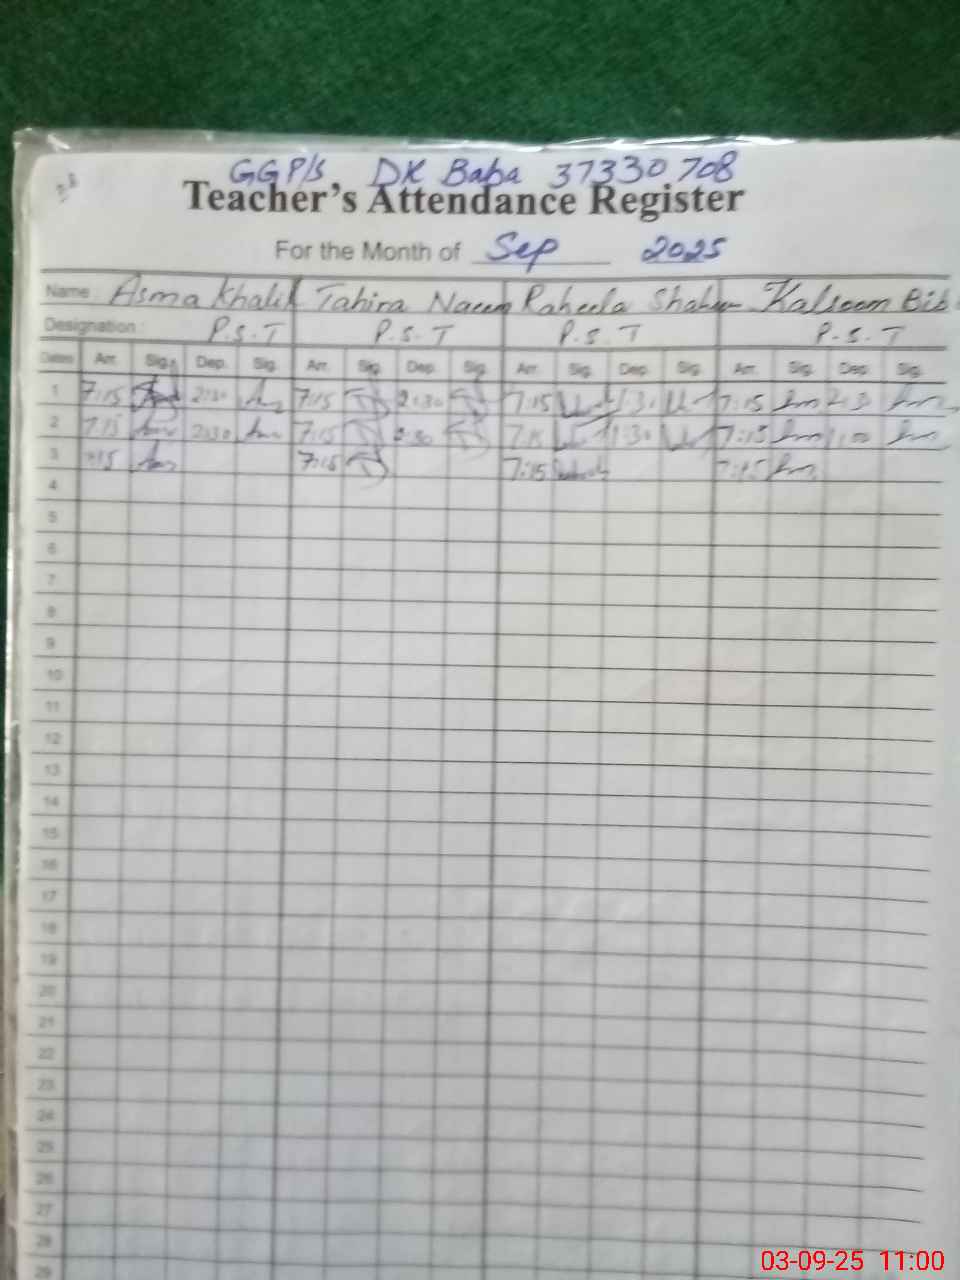 GGP/S DK Baba 37330708
Teacher's Attendance Register
For the Month of Sep 2025
Name : Asma Khalik Tahira Naeem Raheela Shaheen Kalsoom Bibi
Designation : P.S.T P.S.T P.S.T P.S.T
Dates Arr. Sig. Dep. Sig. Arr. Sig. Dep. Sig. Arr. Sig. Dep. Sig. Arr. Sig. Dep. Sig.
1 7:15 2:30 7:15 2:30 7:15 1:30 7:15 2:30
2 7:15 2:30 7:15 2:30 7:15 1:30 7:15 1:00
3 7:15 7:15 7:15 7:15
4
5
6
7
8
9
10
11
12
13
14
15
16
17
18
19
20
21
22
23
24
25
26
27
28
29
03-09-25 11:00